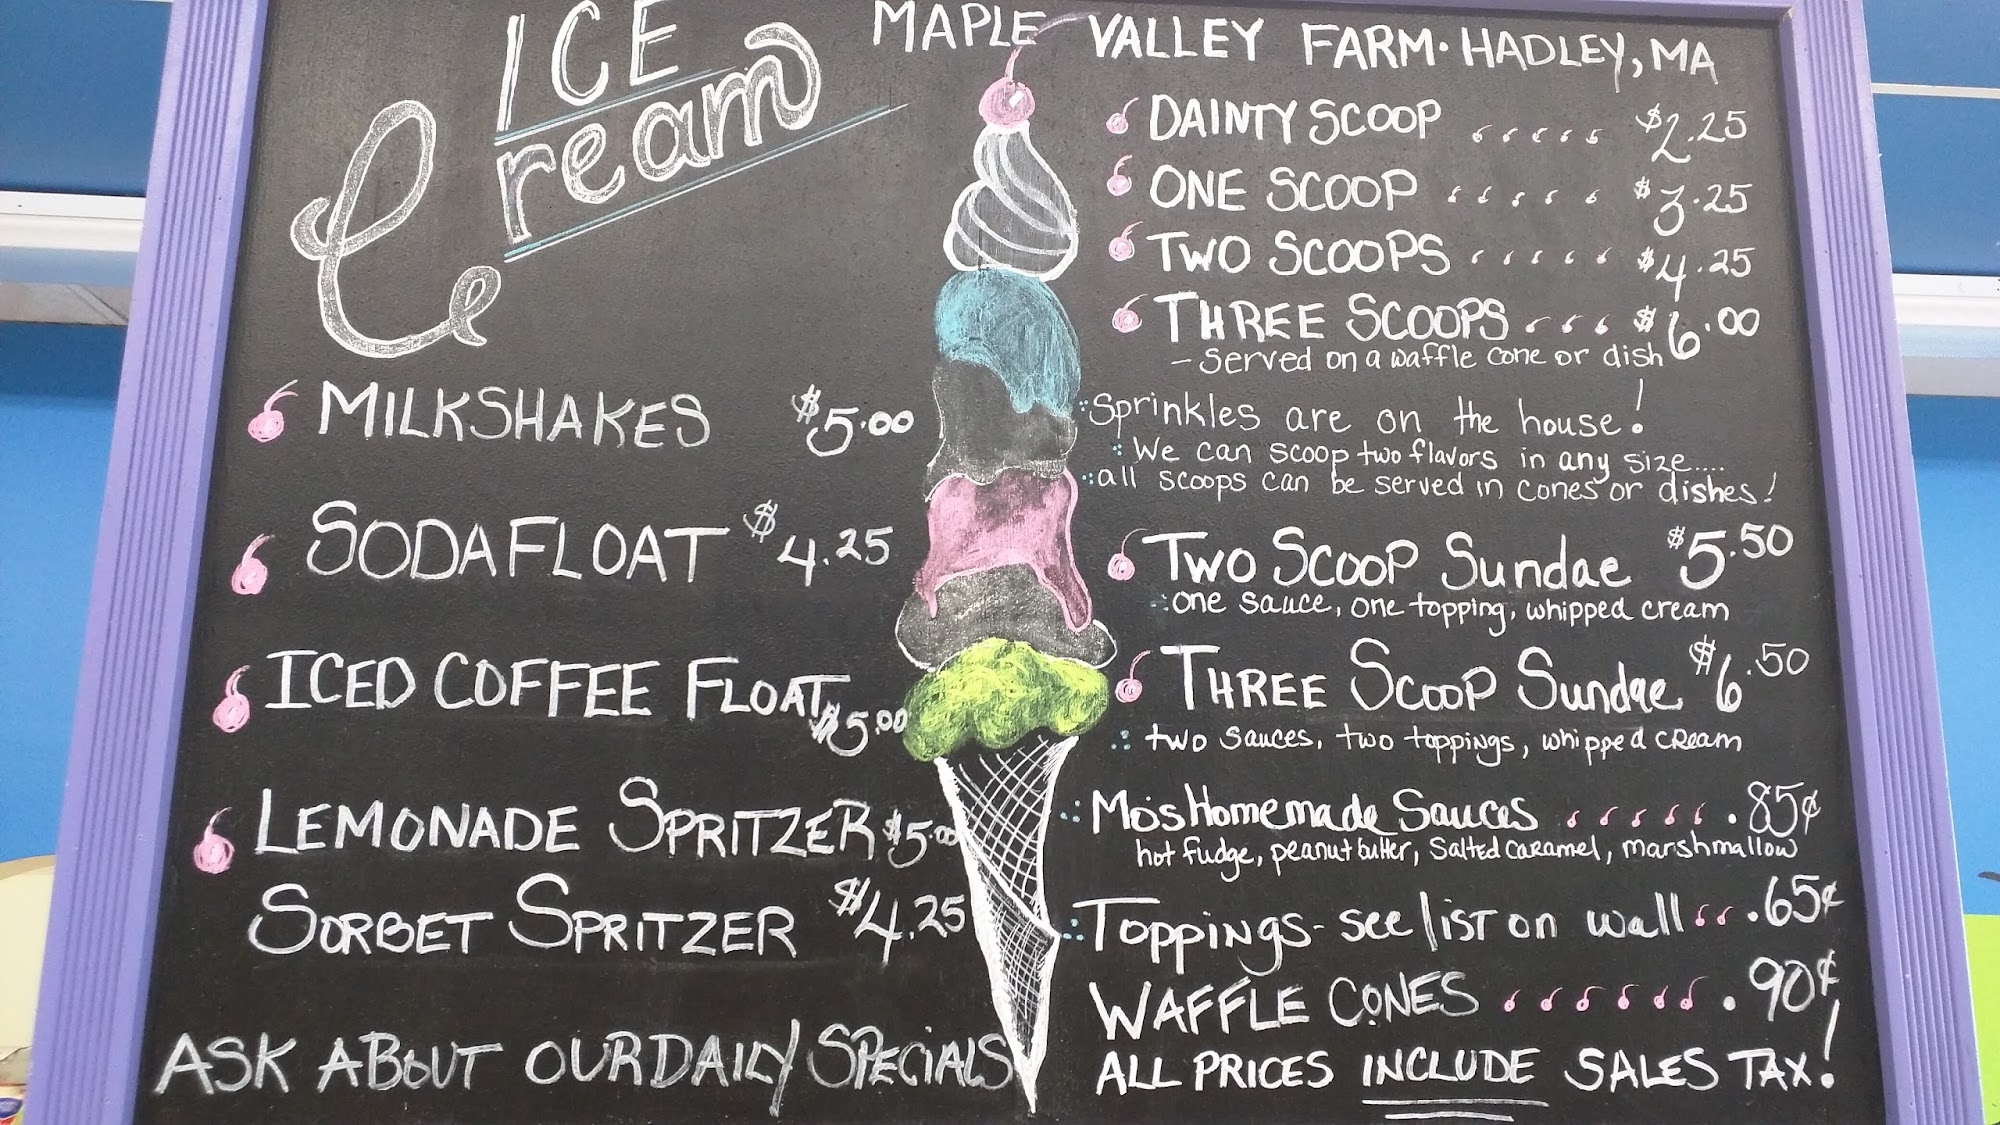 ICE
Cream
MAPLE VALLEY FARM · HADLEY, MA
MILKSHAKES $5.00
SODA FLOAT $4.25
ICED COFFEE FLOAT $5.00
LEMONADE SPRITZER $5.00
SORBET SPRITZER $4.25
ASK ABOUT OUR DAILY SPECIALS
DAINTY SCOOP $2.25
ONE SCOOP $3.25
TWO SCOOPS $4.25
THREE SCOOPS $6.00
- served on a waffle cone or dish
Sprinkles are on the house!
We can scoop two flavors in any size....
all scoops can be served in cones or dishes!
TWO SCOOP Sundae $5.50
one sauce, one topping, whipped cream
THREE SCOOP Sundae $6.50
two sauces, two toppings, whipped cream
Mo's Homemade Sauces .85¢
hot fudge, peanut butter, salted caramel, marshmallow
Toppings - see list on wall .65¢
WAFFLE CONES .90¢
ALL PRICES INCLUDE SALES TAX!